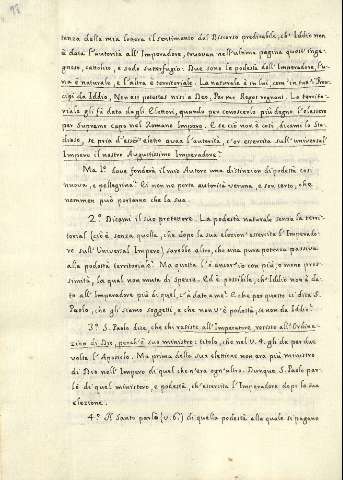 tenza della mia lettera il sentimento del Discorso predicabile, ch'Iddio non
è data l'autorità all'Imperadore, trovava nell'ultima pagina questi inge-
gnoso, cattolico, e sodo sutterfugio: Due sono le podestà dell'Imperadore, l'u-
na è naturale, e l'altra è territoriale. La naturale è in lui, come in tutti i Prin-
cipi da Iddio, Non est potestas nisi a Deo, Per me Reges regnant. La territo-
riale gli è data dagli Elettori, quando per conoscerlo più degno l'elessero
per Supremo capo nel Romano Impero. E se ciò non è così, dicami lo Stu-
dioso, se pria d'esser eletto avea l'autorità, ch'or esercita sull'universal
Impero il nostro Augustissimo Imperadore?
Ma 1.° dove fonderà il mio Autore una distinzion di podestà così
nuova, e pellegrina? Ei non ne porta autorità veruna, e son certo, che
nemmen può portarne che la sua.
2.° Dicami il suo protettore. La podestà naturale senza la terri-
torial (cioè senza quella, che dopo la sua elezion' esercita l'Imperado-
re sull'Universal Impero) sarebbe altro, che una pura potenza passiva
alla podestà territoriale? Ma questa l'è ancor'io con più, o meno pros-
simità, la qual non muta di spezie. Ed è possibile, ch'Iddio non à da-
to all'Imperadore più di quel, c'à dato a me? E che per questo ci dica S.
Paolo, che gli siamo soggetti, e che non v'è podestà, se non da Iddio?
3.° S. Paolo dice, che chi resiste all'Imperatore, resiste all'Ordina-
zion di Dio, perch'è suo ministro: titolo, che nel v. 4. gli dà per due
volte l'Apostolo. Ma prima della sua elezione non era più ministro
di Dio nell'Impero di quel che n'era ogn'altro. Dunque S. Paolo par-
lò di quel ministero, e podestà, ch'esercita l'Imperadore dopo la sua
elezione.
4.° Il Santo parlò (v. 6.) di quella podestà alla quale si pagano